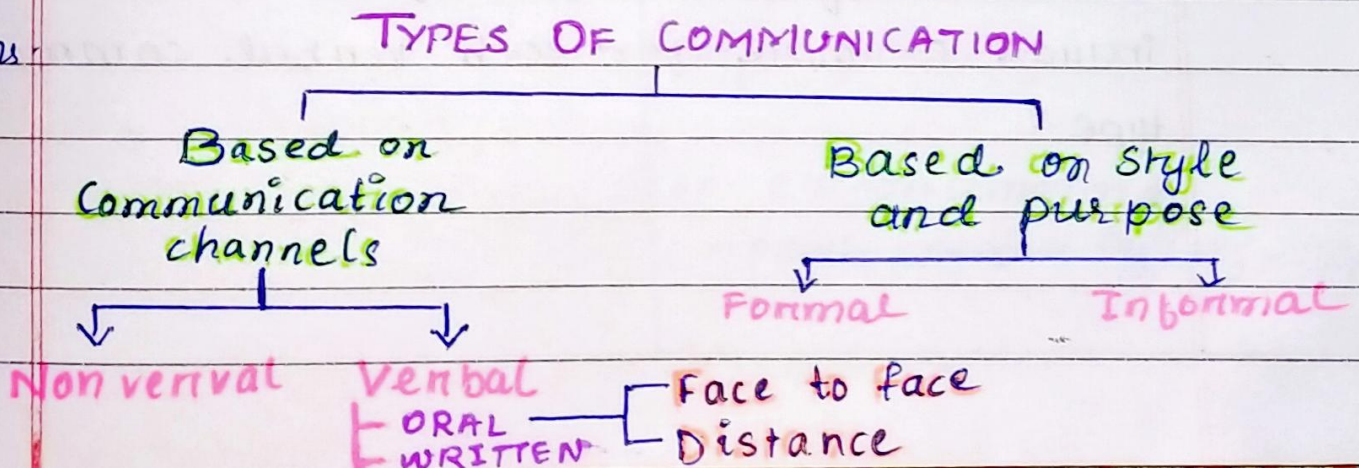 TYPES OF COMMUNICATION
Based on
Communication
channels
Based on style
and purpose
Formal
Informal
Non verval
Verbal
ORAL
WRITTEN
Face to face
Distance